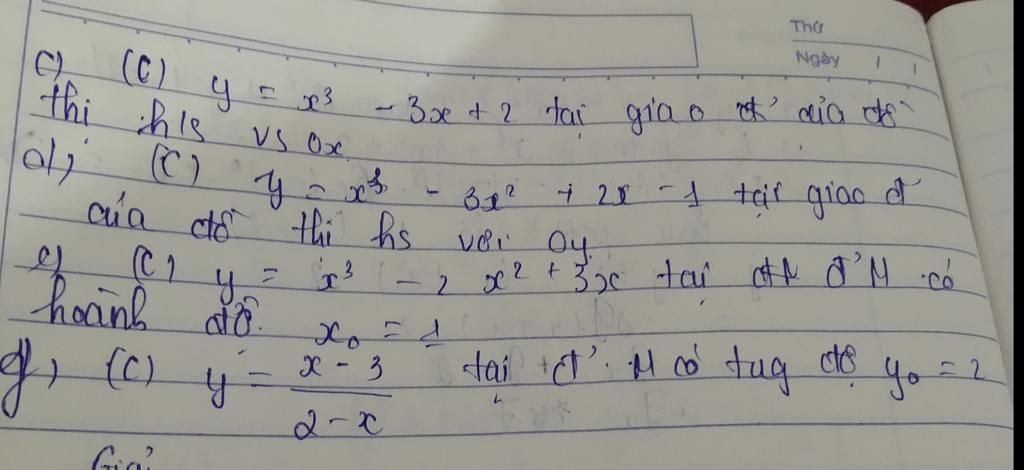 Thứ
Ngày / /
c) (C) y = x³ - 3x + 2 tại giao đ' của đồ
thị h/s vs Ox.
d) (C) y = x³ - 3x² + 2x - 1 tại giao đ
của đồ thị hs với Oy
e) (C) y = x³ - 2x² + 3x tại đ' M có
hoành độ x₀ = 1
g) (C) y = \frac{x-3}{2-x} tại đ' M có tug độ y₀ = 2
Giải